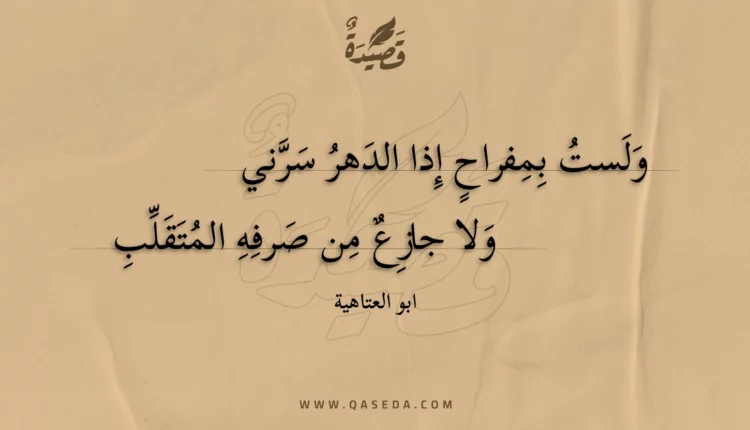 قَصِيدَةٌ
وَلَستُ بِمِفراحٍ إِذا الدَهرُ سَرَّني
وَلا جازِعٌ مِن صَرفِهِ المُتَقَلِّبِ
ابو العتاهية
WWW.QASEDA.COM